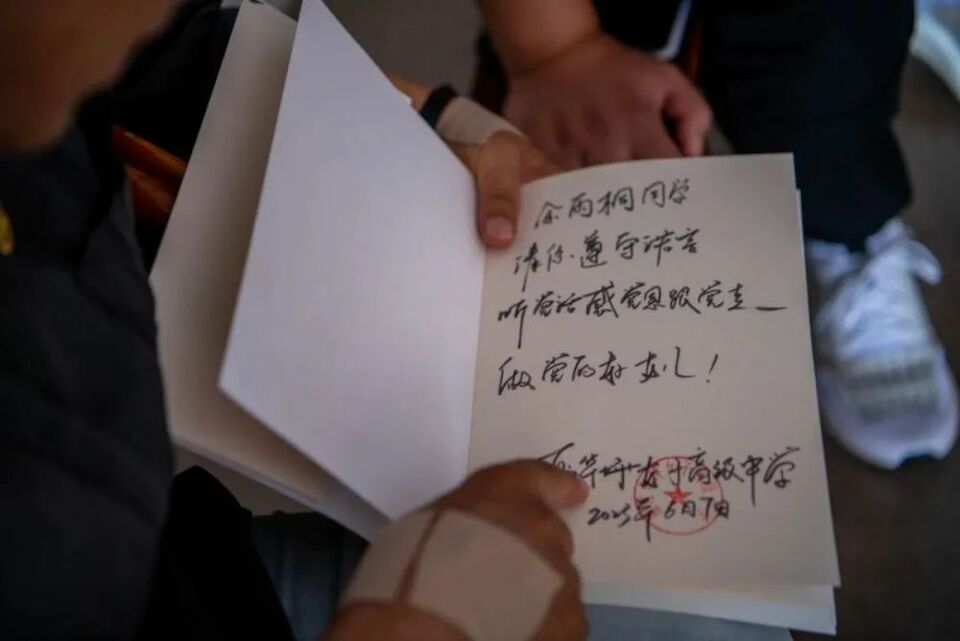 余雨桐同学
请你遵守诺言
听党话感党恩跟党走—
做党的好女儿！
华坪女子高级中学
2023年6月7日